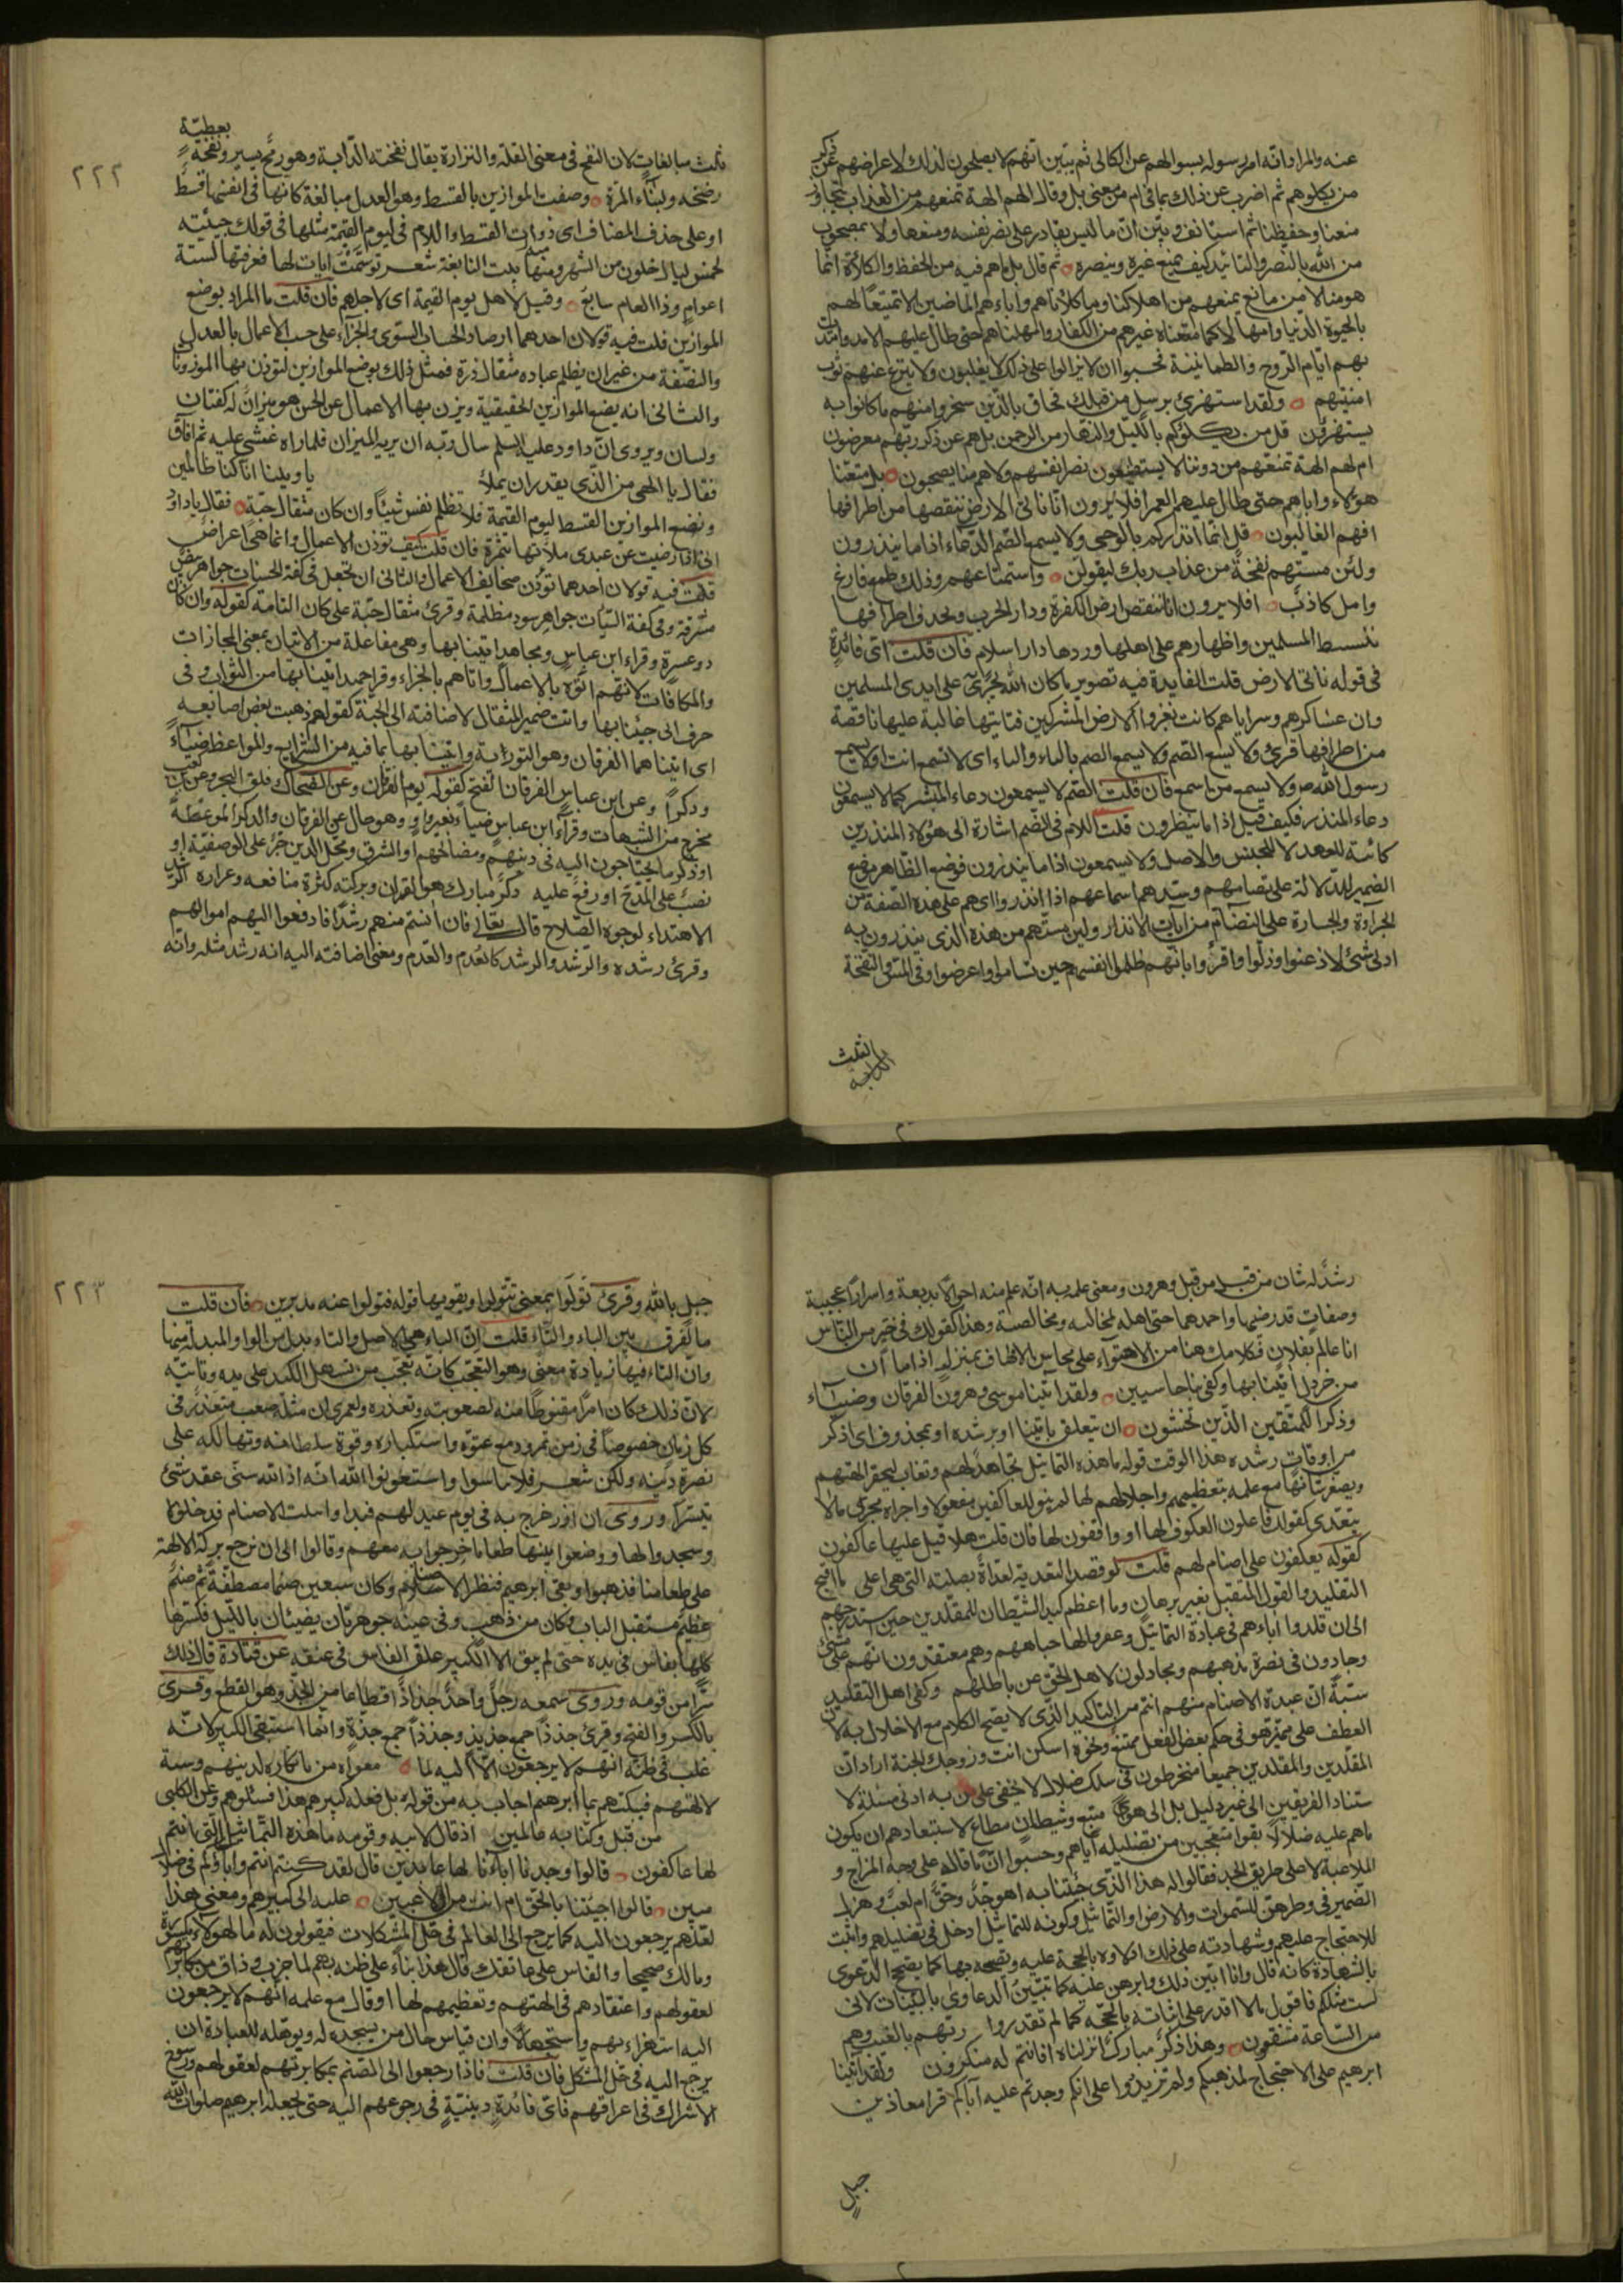 عنه والمراد انه امر رسوله بسوالهم عن الكالى ثم يبين انهم لا يصلحون لذلك لاعراضهم عن ذكر
من يكلوهم ثم اضرب عن ذلك بما فى ام من معنى بل وقال الهم الهة تمنعهم من العذاب تتجاوز
منعنا وحفظنا ثم استانف وبين ان ما ليس بقادر على نصر نفسه ومنعها ولا بمصحوب
من الله بالنصر والتائيد كيف يمنع غيره وينصره ثم قال بل ماهم فيه من الحفظ والكلاءة انما
هو منا لا من مانع يمنعهم من اهلاكنا وما كلاناهم واباءهم الماضين الا تمتيعا لهم
بالحيوة الدنيا وامهالا كما متعنا غيرهم من الكفار وامهلناهم حتى طال عليهم الامد وامتدت
بهم ايام الروح والطمانينة فحسبوا ان لا يزالوا على ذلك لا يغلبون ولا ينزع عنهم ثوب
امنيتهم ولقد استهزئ برسل من قبلك فحاق بالذين سخروا منهم ما كانوا به
يستهزؤن قل من يكلؤكم بالليل والنهار من الرحمن بل هم عن ذكر ربهم معرضون
ام لهم الهة تمنعهم من دوننا لا يستطيعون نصر انفسهم ولا هم منا يصحبون بل متعنا
هؤلاء واباءهم حتى طال عليهم العمر افلا يرون انا ناتى الارض ننقصها من اطرافها
افهم الغالبون قل انما انذركم بالوحى ولا يسمع الصم الدعاء اذا ما ينذرون
ولئن مستهم نفخة من عذاب ربك ليقولن واستمتاعهم وذلك طمع فارغ
وامل كاذب افلا يرون انا ننقص ارض الكفرة ودار الحرب ونحذف اطرافها
بتسليط المسلمين واظهارهم على اهلها وردها دار اسلام فان قلت اى فائدة
فى قوله ناتى الارض قلت الفايدة فيه تصوير ما كان الله يجرى على ايدى المسلمين
وان عساكرهم وسراياهم كانت تغزوا الارض المشركين فتاتيها غالبة عليها ناقصة
من اطرافها قرئ ولا يسمع الصم ولا يسمع الصم بالتاء والياء اى لا تسمع انت او لا يسمع
رسول الله ص ولا يسمع من اسمع فان قلت الصم لا يسمعون دعاء المبشر كما لا يسمعون
دعاء المنذر فكيف قيل اذا ما ينذرون قلت اللام فى الصم اشارة الى هؤلاء المنذرين
كائنة للعهد لا للجنس والاصل ولا يسمعون اذا ما ينذرون فوضع الظاهر موضع
الضمير للدلالة على تصامهم وسدهم اسماعهم اذا انذروا اى هم على هذه الصفة من
الجراءة والجسارة على التصام من ايات الانذار ولئن مستهم من هذه الذى ينذرون به
ادنى شئ لاذعنوا وذلوا واقروا بانهم ظلموا انفسهم حين تصاموا واعرضوا وفى المس والنفخة
ثلث مبالغات لان النفخ فى معنى القلة والنزارة يقال نفخته الدابة وهو رمح يسير ونفخة
بعطية
رضخه ولبناء المرة وصفت الموازين بالقسط وهو العدل مبالغة كانها فى انفسها قسط
او على حذف المضاف اى ذوات القسط واللام فى ليوم القيمة مثلها فى قولك جيئته
لخمس ليال خلون من الشهر ومنها بيت النابغة شعر توسمت ايات لها فعرفتها لستة
اعوام وذا العام سابع وقيل لاهل يوم القيمة اى لاجلهم فان قلت ما المراد بوضع
الموازين قلت فيه قولان احدهما ارصاد الحساب السوى والجزاء على حسب الاعمال بالعدل
والنصفة من غير ان يظلم عباده مثقال ذرة فمثل ذلك بوضع الموازين لتوزن بها الموزونات
والثانى انه يضع الموازين الحقيقية ويزن بها الاعمال عن الحسن هو ميزان له كفتان
ولسان ويروى ان داود عليه السلم سال ربه ان يريه الميزان فلما راه غشى عليه ثم افاق
فقال يا الهى من الذى يقدر ان يملأ يا ويلنا انا كنا ظالمين
ونضع الموازين القسط ليوم القيمة فلا تظلم نفس شيئا وان كان مثقال حبة فقال يا داود
انى اذا رضيت عن عبدى ملاتها بتمرة فان قلت كيف توزن الاعمال وانما هى اعراض
قلت فيه قولان احدهما توزن صحايف الاعمال والثانى ان تجعل فى كفة الحسنات جواهر بيض
مشرقة وفى كفة السيئات جواهر سود مظلمة وقرئ مثقال حبة على كان التامة كقوله وان كان
ذو عسرة وقراء ابن عباس ومجاهد اتينا بها وهى مفاعلة من الاتيان بمعنى المجازات
والمكافات لانهم اتوه بالاعمال واتاهم بالجزاء وقرا حميد اثبنا بها من الثواب وفى
حرف ابى جيئنا بها وانت ضمير المثقال لاضافته الى الحبة كقولهم ذهبت بعض اصابعه
اى اتيناهما الفرقان وهو التورية واتينا بها بما فيه من الشرايع والمواعظ ضياء
وذكرا وعن ابن عباس الفرقان الفتح لقوله يوم الفرقان وعن الضحاك وفلق البحر وعن محمد بن كعب
مخرج من الشبهات وقراء ابن عباس ضياء بغير واو وهو حال عن الفرقان والذكر الموعظة
او ذكر ما يحتاجون اليه فى دينهم ومصالحهم او الشرف ومحل الذين جر على الوصفية او
نصب على المدح او رفع عليه ذكر مبارك هو القران وبركته كثرة منافعه وغزارة الرشد
الاهتداء لوجوه الصلاح قال تعالى فان انستم منهم رشدا فادفعوا اليهم اموالهم
وقرئ رشده والرشد والرشد كالعدم والعدم ومعنى اضافته اليه انه رشد مثله وانه
رشد له شان من قبل من قبل وهرون ومعنى علمه به انه علم منه احوالا بديعة واسرارا عجيبة
وصفات قد رضيها واحمدها حتى اهله لمخالته ومخالصته وهذا كقولك فى خير من الناس
انا عالم بفلان فكلامك هنا من الاحتواء على محاسن الاوصاف بمنزلة اذا ما ان
من خردل اتينا بها وكفى بنا حاسبين ولقد اتينا موسى وهرون الفرقان وضياء
وذكرا للمتقين الذين يخشون ان تتعلق باتينا او برشده او بمحذوف اى اذكر
من اوقات رشده هذا الوقت قوله ما هذه التماثيل تجاهل لهم وتغاب ليحقر الهتهم
ويصغر شانها مع علمه بتعظيمهم واجلالهم لها لم ينو للعاكفين مفعولا واجراه مجرى ما لا
يتعدى كقولك فاعلون العكوف لها او واقفون لها فان قلت هلا قيل عليها عاكفون
كقوله يعكفون على اصنام لهم قلت لو قصد التعدية لعداه بصلته التى هى على ما اقبح
التقليد والقول المتقبل بغير برهان وما اعظم كيد الشيطان للمقلدين حين استدرجهم
الى ان قلدوا اباءهم فى عبادة التماثيل وعفروا لها جباههم وهم معتقدون انهم على شئ
وجادون فى نصرة مذهبهم ومجادلون لاهل الحق عن باطلهم وكفى اهل التقليد
سبة ان عبدة الاصنام منهم انتم من التاكيد الذى لا يصح الكلام مع الاخلال به لان
العطف على ضمير هو فى حكم بعض الفعل ممتنع ونحوه اسكن انت وزوجك الجنة اراد ان
المقلدين والمقلدين جميعا منخرطون فى سلك ضلال لا يخفى على من به ادنى مسكة لا
ستناد الفريقين الى غير دليل بل الى هوى متبع وشيطان مطاع لاستبعادهم ان يكون
ماهم عليه ضلالا بقوا متعجبين من تضليله اياهم وحسبوا ان ما قاله على وجه المزاح و
الملاعبة لا على طريق الجد فقالوا له هذا الذى جئتنا به اهو جد وحق ام لعب وهزل
الضمير فى فطرهن للسموات والارض او التماثيل وكونه للتماثيل ادخل فى تضليلهم واثبت
للاحتجاج عليهم وشهادته على ذلك ادلاوه بالحجة عليه وتصحيحه بها كما يصحح الدعوى
بالشهادة كانه قال وانا ابين ذلك وابرهن عليه كما تبين الدعاوى بالبينات لانى
لست مثلكم فاقول ما لا اقدر على اثباته بالحجة كما لم تقدروا ربهم بالغيب وهم
من الساعة مشفقون وهذا ذكر مبارك انزلناه افانتم له منكرون ولقد اتينا
ابرهيم على الاحتجاج لمذهبكم ولم تزيدوا على انكم وجدتم عليه آباكم قرا معاذ بن
جبل
جبل بالله وقرئ تولوا بمعنى تتولوا ويقويها قوله فتولوا عنه مدبرين فان قلت
ما الفرق بين الباء والتاء قلت ان الباء هى الاصل والتاء بدل من الواو المبدلة منها
وان التاء فيها زيادة معنى وهو التعجب كانه تعجب من تسهل الكيد على يده وتاتيه
لان ذلك كان امرا مقنوطا منه لصعوبته وتعذره ولعمرى ان مثله صعب متعذر فى
كل زمان خصوصا فى زمن نمرود مع عتوه واستكباره وقوة سلطانه وتهالكه على
نصرة دينه ولكن شعر فلا تياسوا واستعونوا الله انه اذا الله سنى عقد شئ
تيسرا وروى ان ازر خرج به فى يوم عيد لهم فبداوا ببيت الاصنام فدخلوه
وسجدوا لها ووضعوا بينها طعاما خرجوا به معهم وقالوا الى ان نرجع بركت الالهة
على طعامنا فذهبوا وبقى ابرهيم فنظر الاصنام وكان سبعين صنما مصطفة ثم صنم
عظيم مستقبل الباب وكان من ذهب وفى عينه جوهرتان يضيئان بالليل فكسرها
كلها بفاس فى يده حتى لم يبق الا الكبير علق الفاس فى عنقه عن قتادة قال ذلك
سرا من قومه وروى سمعه رجل واحد جذاذا قطاعا من الجذ وهو القطع وقرئ
بالكسر والفتح وقرئ جذذا جمع جذيذ وجذذا جمع جذة وانما استبقى الكبير لانه
غلب فى ظنه انهم لا يرجعون الا اليه لما معواه من انكاره لدينهم وسبه
لالهتهم فيبكتهم بما ابرهم اجاب به من قوله بل فعله كبيرهم هذا فسئلوهم وعن الكلبى
من قبل وكنا به عالمين اذ قال لابيه وقومه ما هذه التماثيل التى انتم
لها عاكفون قالوا وجدنا اباءنا لها عابدين قال لقد كنتم انتم واباؤكم فى ضلال
مبين قالوا اجئتنا بالحق ام انت من اللاعبين عليه الى كبيرهم ومعنى هذا
لعلهم يرجعون اليه كما يرجع الى العالم فى حل المشكلات فيقولون له ما لهؤلاء مكسرة
ومالك صحيحا والفاس على عاتقك قال هذا بناء على ظنه بهم لما جرب وذاق من مكابرتهم
لعقولهم واعتقادهم فى الهتهم وتعظيمهم لها او قال مع علمه انهم لا يرجعون
اليه استهزاء بهم واستجهالا وان قياس حال من يسجد له ويوهله للعبادة ان
يرجع اليه فى حل المشكل فان قلت فاذا رجعوا الى الصنم بمكابرتهم لعقولهم ورسوخ
الاشراك فى اعراقهم فاى فائدة دينية فى رجوعهم اليه حتى يجعله ابرهيم صلوات الله
٢٢٢
٢٢٣